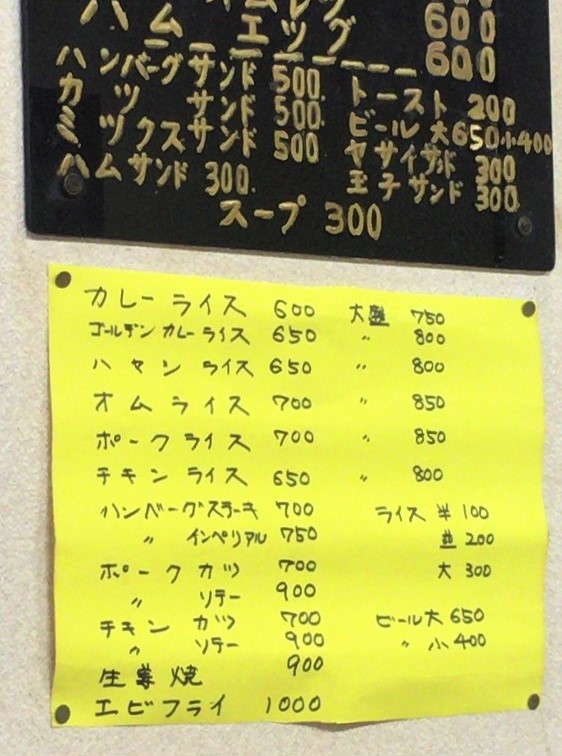 600
ハム エッグ 600
ハンバーグサンド 500 トースト 200
カツ サンド 500 ビール 大650 小400
ミックスサンド 500 ヤサイサンド 300
ハムサンド 300 玉子サンド 300
スープ 300
カレーライス 600 大盛 750
ゴールデンカレーライス 650 〃 800
ハヤシライス 650 〃 800
オムライス 700 〃 850
ポークライス 700 〃 850
チキンライス 650 〃 800
ハンバーグステーキ 700 ライス 半 100
〃 インペリアル 750 並 200
ポークカツ 700 大 300
〃 ソテー 900
チキンカツ 700 ビール大 650
〃 ソテー 900 〃 小 400
生姜焼 900
エビフライ 1000